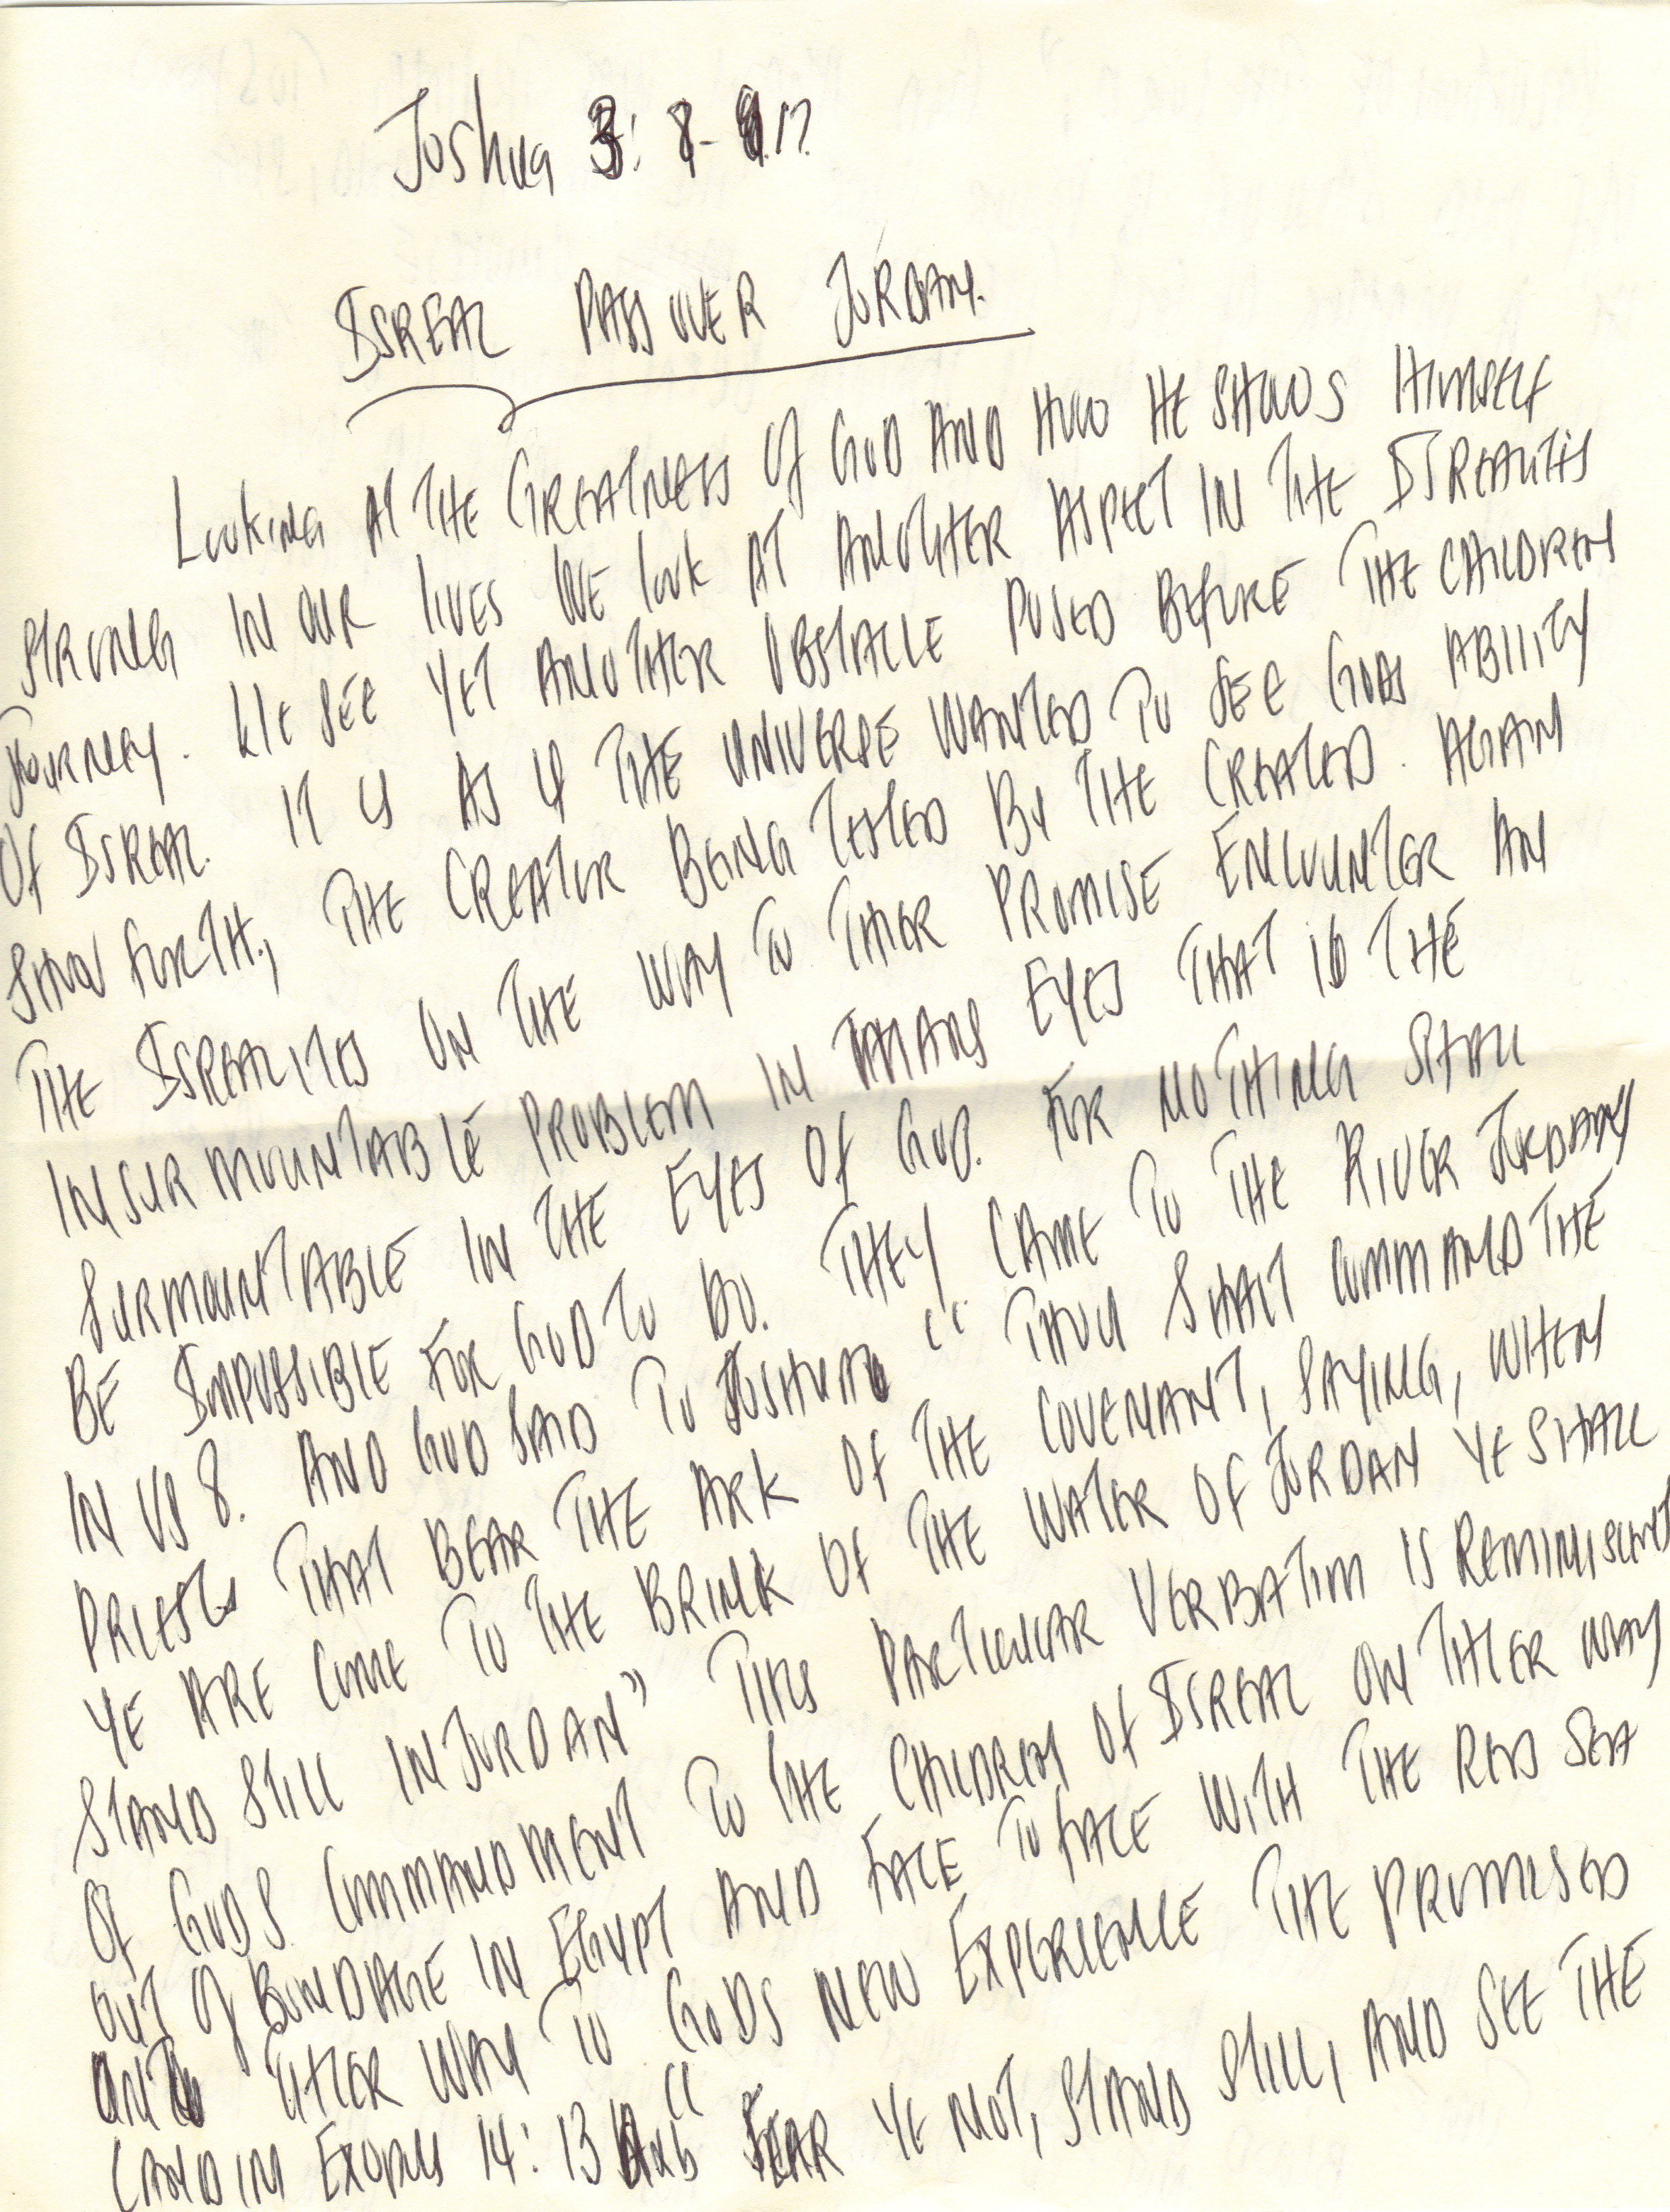 Joshua 3: 8-17.
ISREAL PASS OVER JORDAN.
Looking AT THE GREATNESS OF GOD AND HOW HE SHOWS HIMSELF
STRONG IN OUR LIVES WE look AT ANOTHER ASPECT IN THE ISREALITES
JOURNEY. WE SEE YET ANOTHER OBSTACLE POSED BEFORE THE CHILDREN
OF ISREAL. IT IS AS IF THE UNIVERSE WANTED TO SEE GODS ABILITY
SHOW FORTH, THE CREATOR BEING TESTED BY THE CREATED. AGAIN
THE ISREALITES ON THE WAY TO THIER PROMISE ENCOUNTER AN
INSURMOUNTABLE PROBLEM IN EYES THAT IS THE
SURMOUNTABLE IN THE EYES OF GOD. FOR NOTHING SHALL
BE IMPOSSIBLE FOR GOD TO DO. THEY CAME TO THE RIVER JORDAN
IN VS 8. AND GOD SAID TO JOSHUA "THOU SHALT COMMAND THE
PRIESTS THAT BEAR THE ARK OF THE COVENANT, SAYING, WHEN
YE ARE COME TO THE BRINK OF THE WATER OF JORDAN YE SHALL
STAND STILL IN JORDAN" THIS PARTICULAR VERBATIM IS REMINISCENT
OF GODS COMMANDMENT TO THE CHILDREN OF ISREAL ON THIER WAY
OUT OF BONDAGE IN EGYPT AND FACE TO FACE WITH THE RED SEA
THIER WAY TO GODS NEW EXPERIENCE THE PROMISED
LAND IN EXODUS 14:13 "FEAR YE NOT, STAND STILL, AND SEE THE